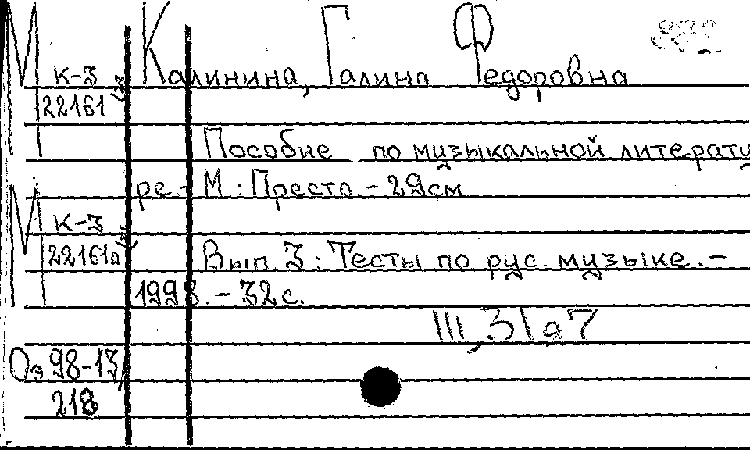 М К-3 Калинина, Галина Федоровна
22161
Пособие по музыкальной литерату
ре.- М.: Престо.- 29см
М К-3
22161а Вып. 3: Тесты по рус. музыке.-
1998.- 32с.
III, 31а7
Оз 98-13/
218